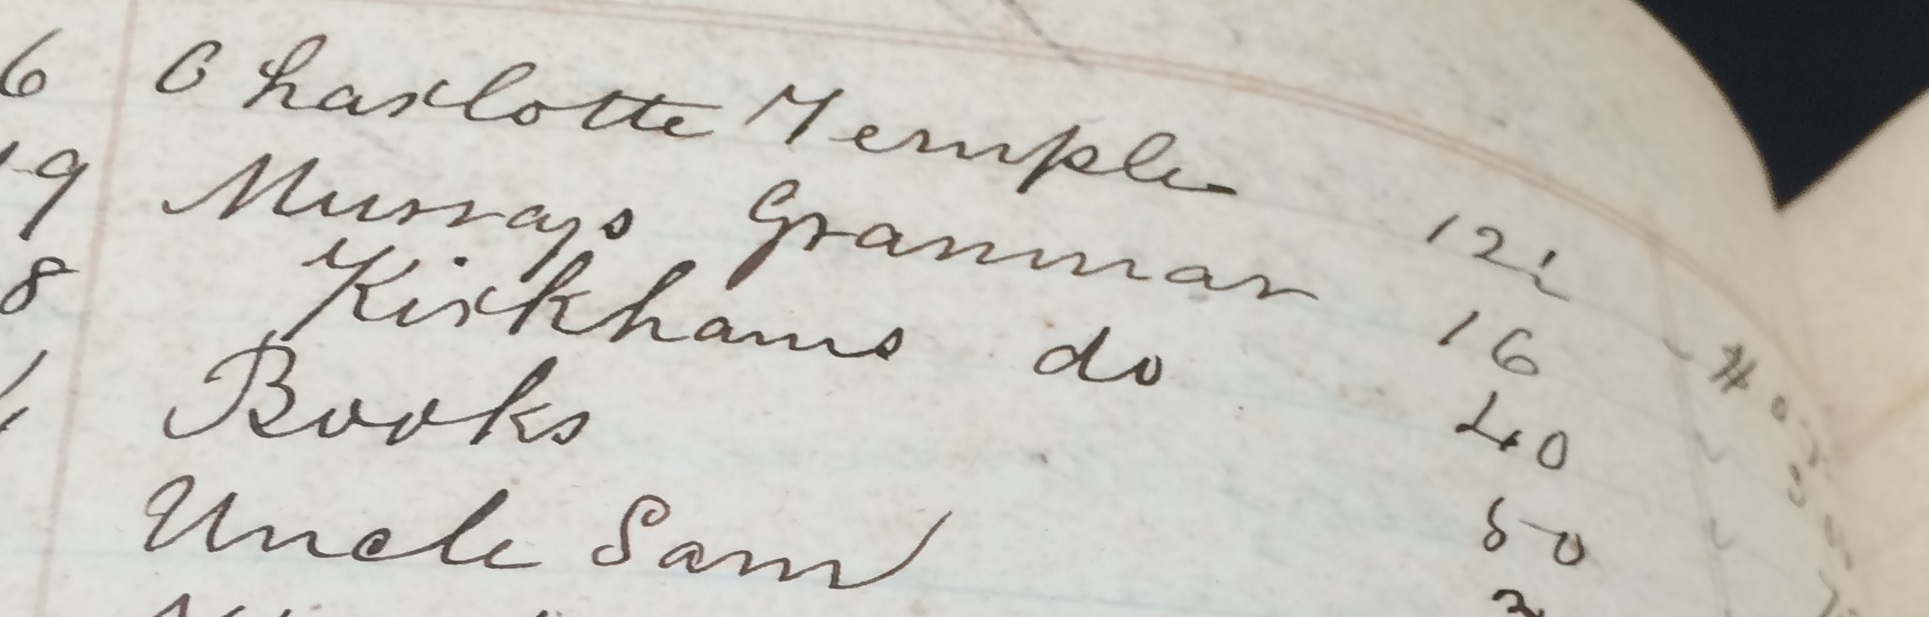 6 Charlotte Temple 12½
19 Murrays Grammar 16
8 Kirkhams do 40
Books 50
Uncle Sam